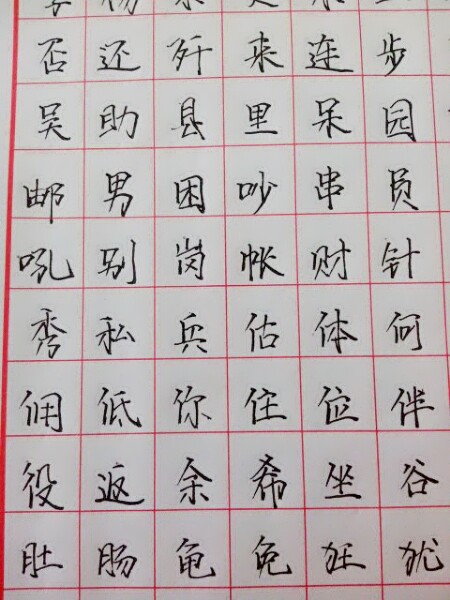 否还歼来连步
吴助县里呆园
邮男困吵串员
吼别岗帐财针
秀私兵估体何
佣低你住位伴
役返余希坐谷
肚肠龟免狂犹